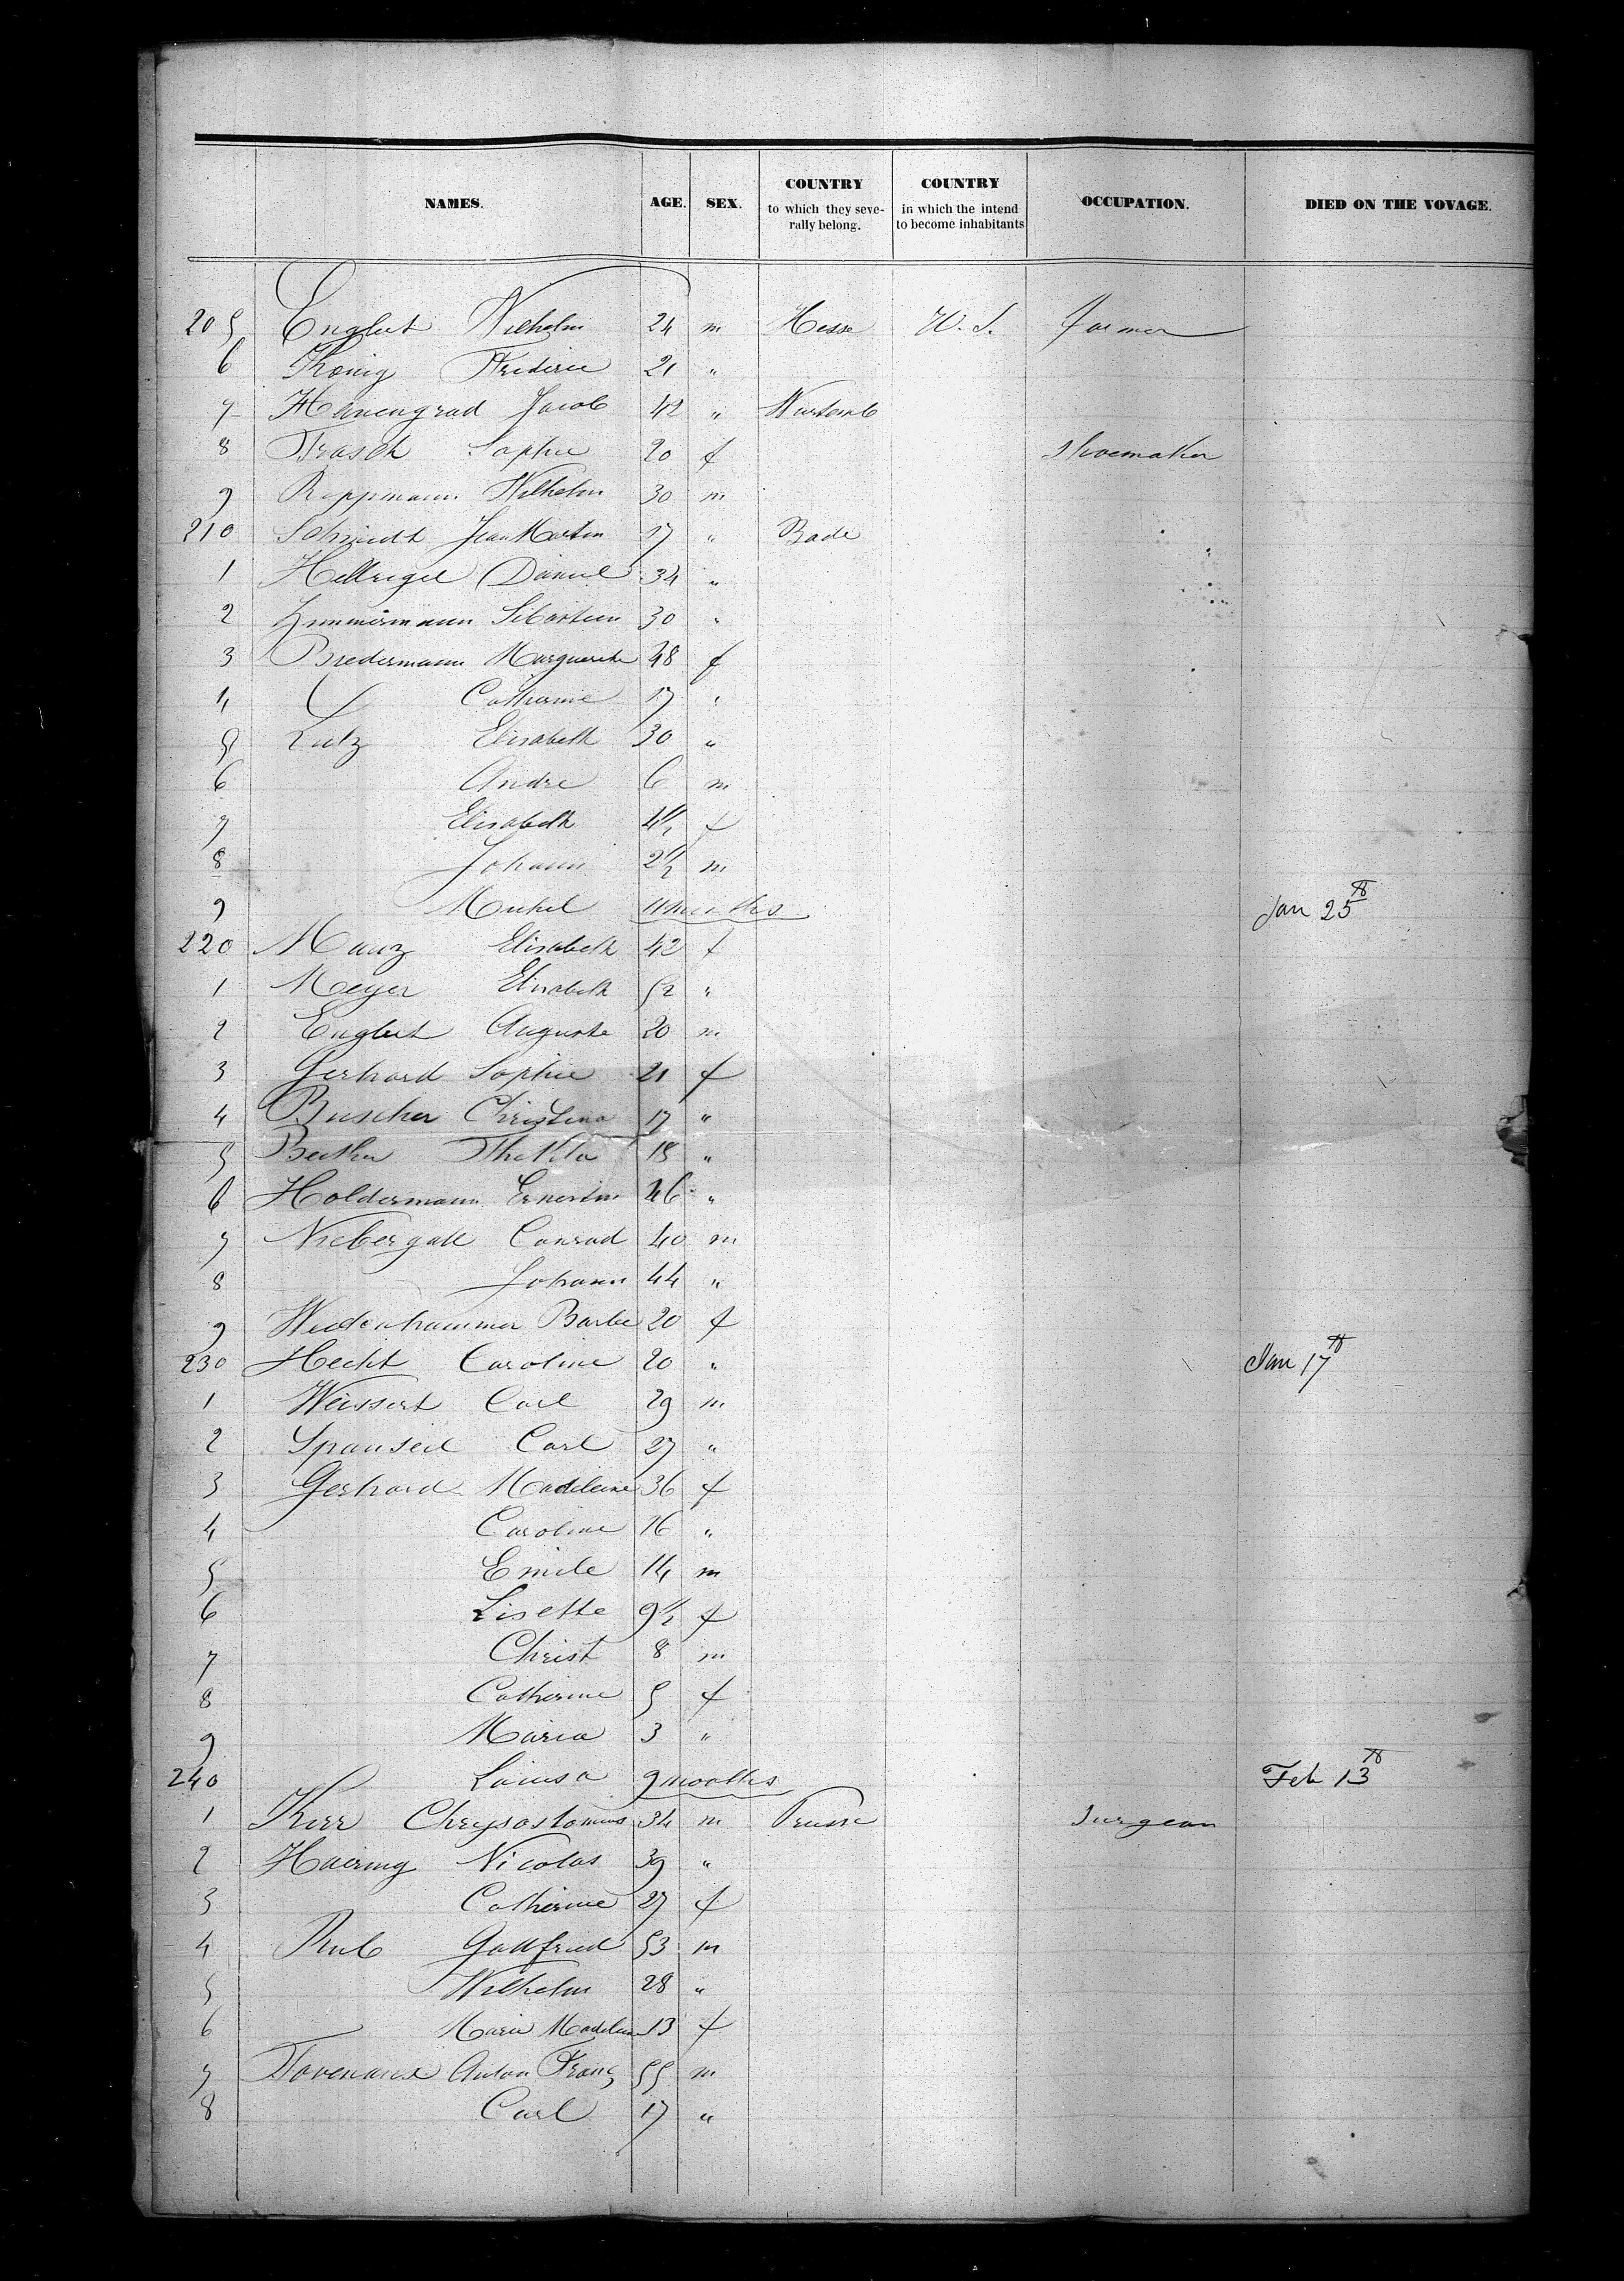 NAMES. AGE. SEX. COUNTRY to which they seve- rally belong. COUNTRY in which the intend to become inhabitants OCCUPATION. DIED ON THE VOYAGE.
205 Englert Wilhelm 24 m Hesse U.S. farmer
6 König Frederic 21 "
7 Jacob 42 " Wurtemb
8 Frasch Sophie 20 f Shoemaker
9 Roppmann Wilhelm 30 m
210 Schmidt Jean Martin 17 " Bade
1 Hellriegel Daniel 34 "
2 Zimmermann Sebastien 30 "
3 Biedermann Marguerite 48 f
4 Catherine 17 "
5 Lutz Elisabeth 30 "
6 Andre 6 m
7 Elisabeth 4 1/2 f
8 Johann 2 1/2 m
9 Michel months Jan 25th
220 Manz Elisabeth 42 f
1 Meyer Elisabeth 52 "
2 Englert Auguste 20 m
3 Gerhard Sophie 21 f
4 Buscher Christina 17 "
5 Thekla 18 "
6 Holdermann Ernestine 46 "
7 Niebergall Conrad 40 m
8 Johann 44 "
9 Weidenhammer Barbe 20 f
230 Hecht Caroline 20 " Jan 17th
1 Weissert Carl 29 m
2 Spanseil Carl 27 "
3 Gerhard Madeleine 36 f
4 Caroline 16 "
5 Emile 14 m
6 Lisette 9 1/2 f
7 Christ 8 m
8 Catherine 5 f
9 Maria 3 "
240 Louisa 9 months Feb 13th
1 Kirr Chrysostomus 34 m Prusse Surgeon
2 Haering Nicolas 39 "
3 Catherine 27 f
4 Rub Gottfried 53 m
5 Wilhelm 28 "
6 Marie Madeleine 13 f
7 Anton Franz 55 m
8 Carl 17 "